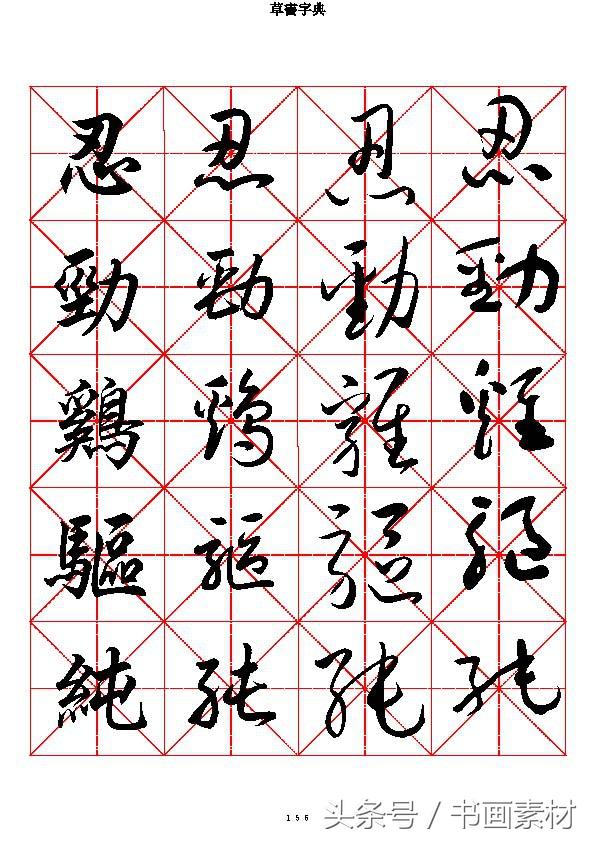 草書字典
忍 忍 忍 忍
勁 勁 勁 勁
鷄 鷄 雞 雞
驅 驅 驅 驅
純 純 純 純
156
头条号 / 书画素材